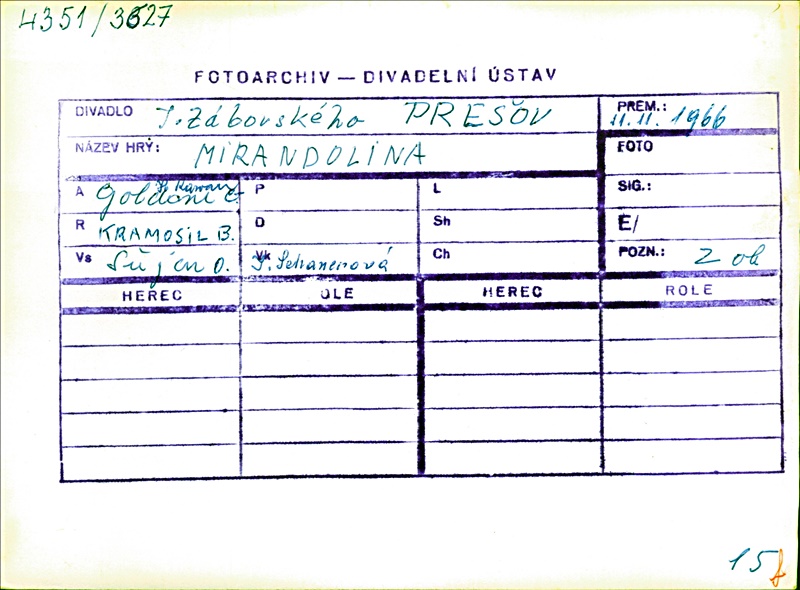 4351/3627
FOTOARCHIV — DIVADELNÍ ÚSTAV
DIVADLO J. Záborského PREŠOV
PREM.: 11.11.1966
NÁZEV HRY: MIRANDOLINA
FOTO
A Goldoni C
P
L
SIG.:
R KRAMOSIL B.
D
Sh
E/
Vs Šujan O.
Vk
Ch
POZN.: 2 ob
HEREC
OLE
HEREC
ROLE
15